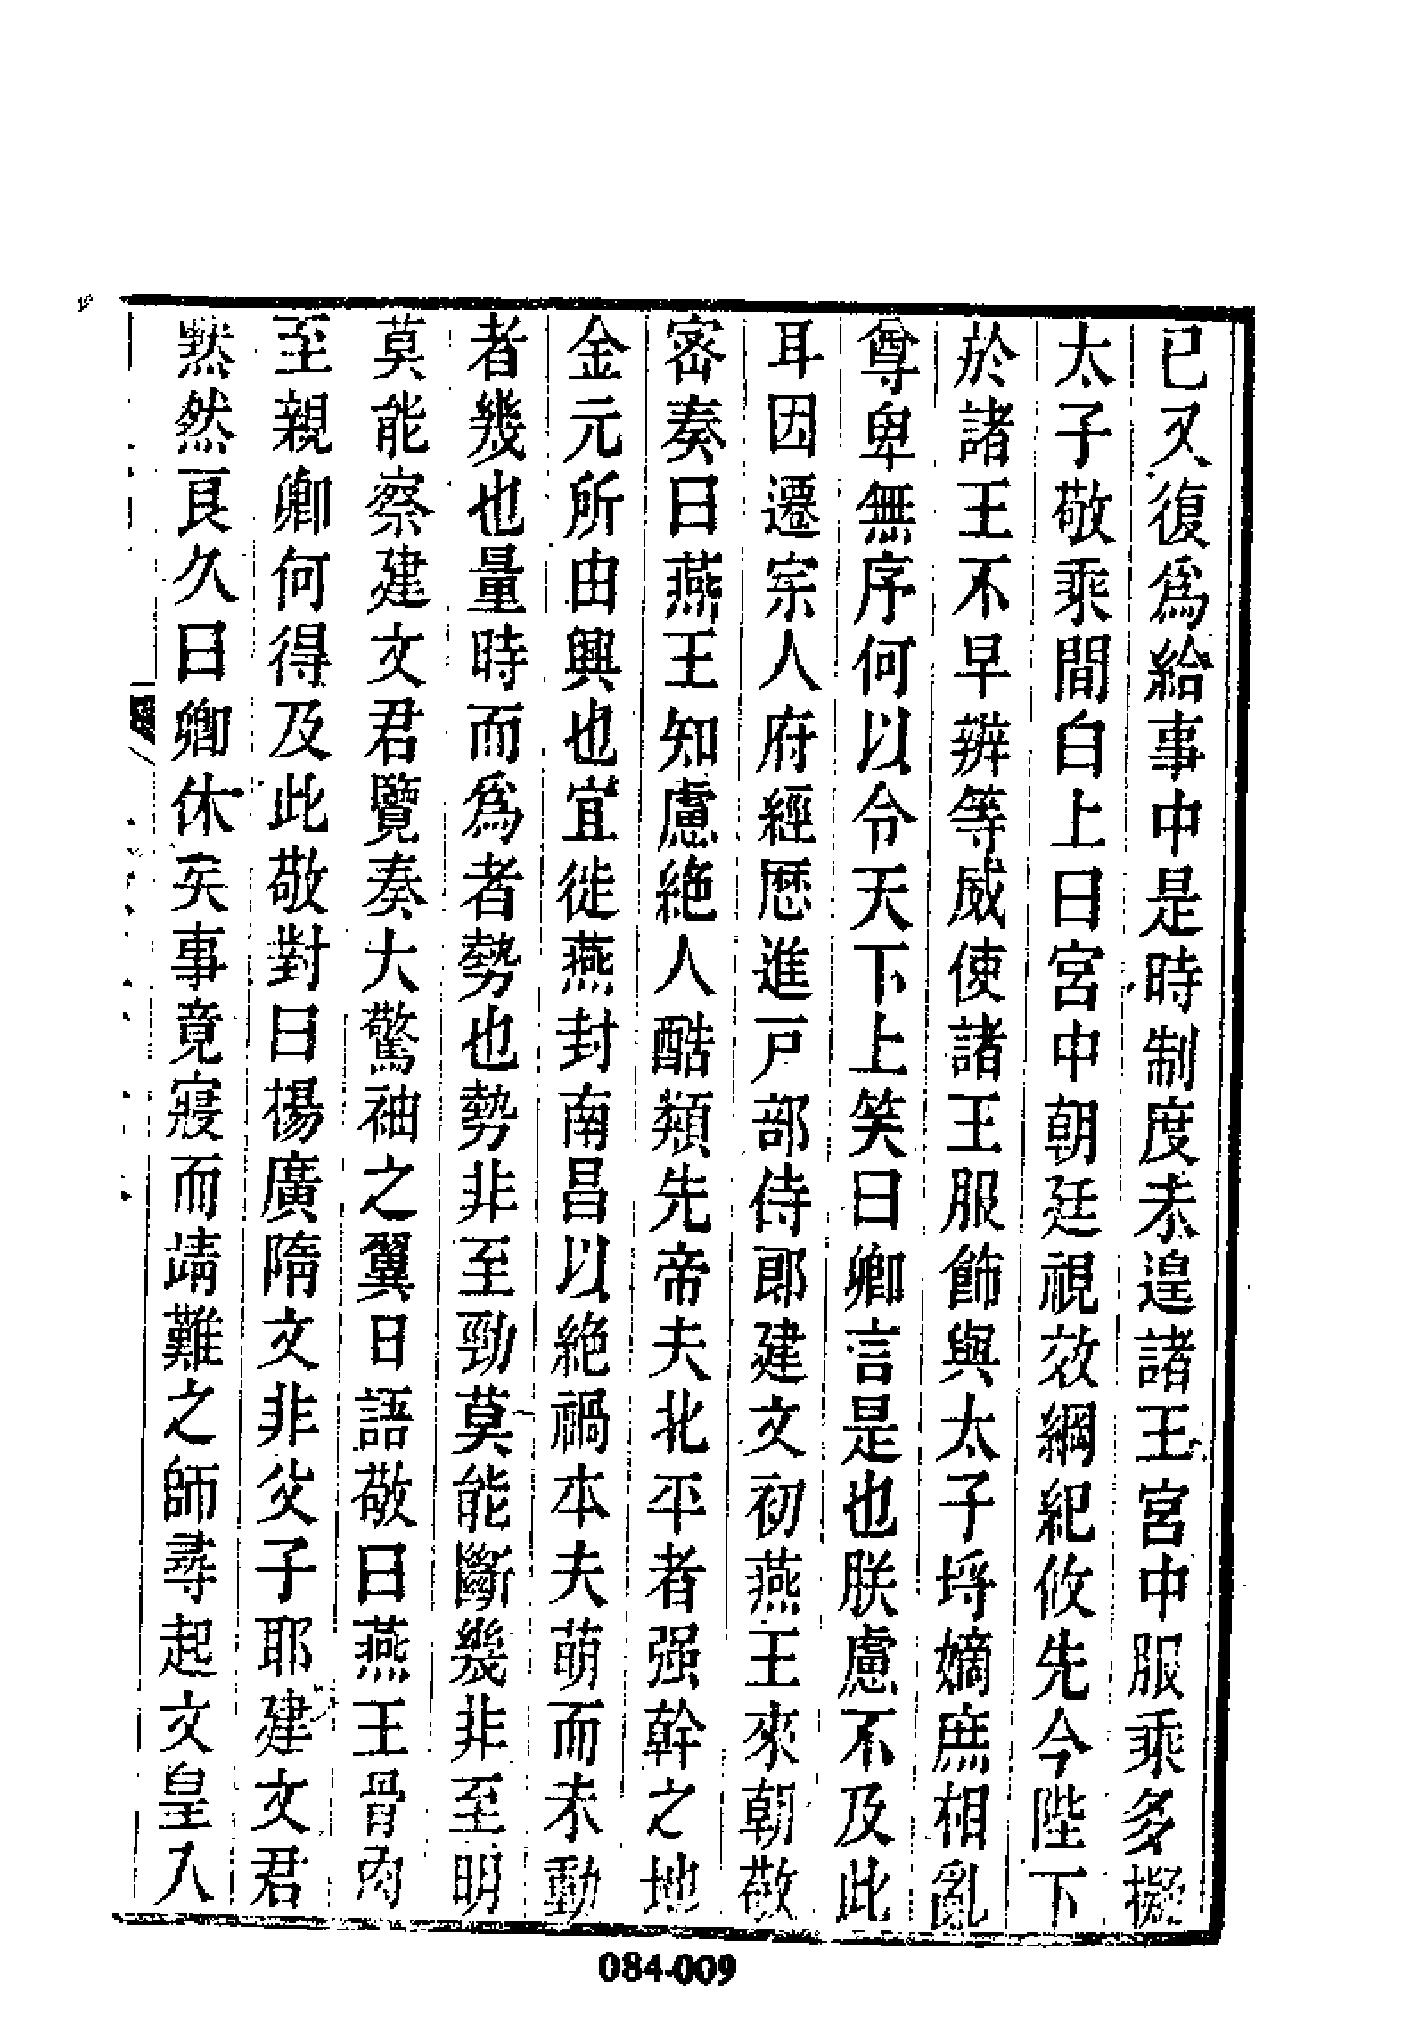 已又復爲給事中是時制度未遑諸王宮中服乘多擬
太子敬乘間白上曰宮中朝廷視效綱紀攸先今陛下
於諸王不早辨等威使諸王服飾與太子埒嫡庶相亂
尊卑無序何以令天下上笑曰卿言是也朕慮不及此
耳因遷宗人府經歷進戸部侍郎建文初燕王來朝敬
密奏曰燕王知慮絶人酷類先帝夫北平者强幹之地
金元所由興也宜徙燕封南昌以絶禍本夫萌而未動
者幾也量時而爲者勢也勢非至勁莫能斷幾非至明
莫能察建文君覽奏大驚袖之翼日語敬曰燕王骨肉
至親卿何得及此敬對曰楊廣隋文非父子耶建文君
黙然良久曰卿休矣事竟寢而靖難之師尋起文皇入
084-009